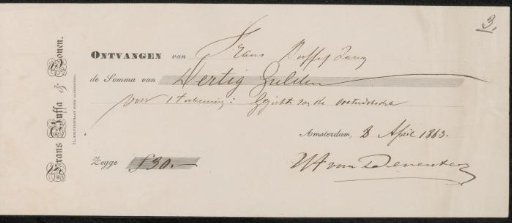 3.
Frans Buffa & Zonen.
ONTVANGEN van Frans Buffa & Zonen
de Somma van Dertig Gulden
voor 1 teekening: Gezicht
Amsterdam, 8 April 1863.
Zegge ƒ30.—
W A van Deventer